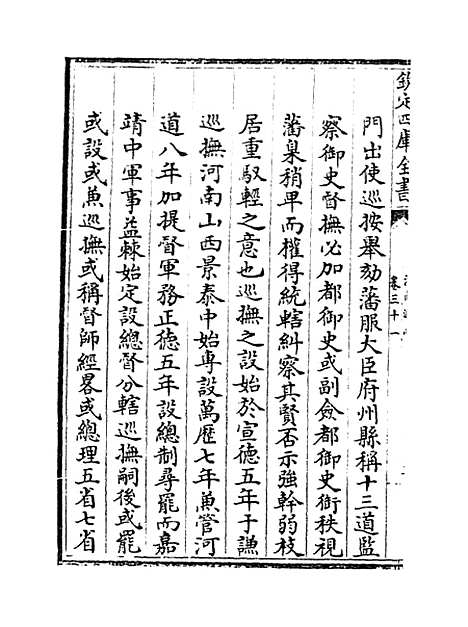 欽定四庫全書
卷三十一
門出使巡按舉劾藩服大臣府州縣稱十三道監
察御史督撫必加都御史或副僉都御史銜秩視
藩臬稍卑而權得統轄糾察其賢否示強幹弱枝
居重馭輕之意也巡撫之設始於宣德五年于謙
巡撫河南山西景泰中始專設萬歷七年兼管河
道八年加提督軍務正德五年設總制尋罷而嘉
靖中軍事益棘始定設總督分轄巡撫嗣後或罷
或設或兼巡撫或稱督師經畧或總理五省七省